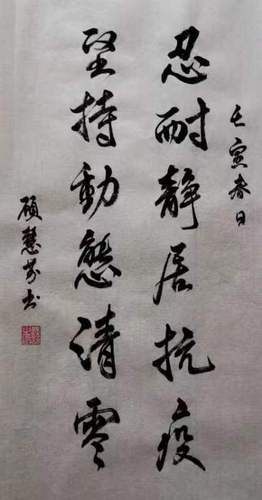 壬寅春日
忍耐靜居抗疫
堅持動態清零
顾慧芬书